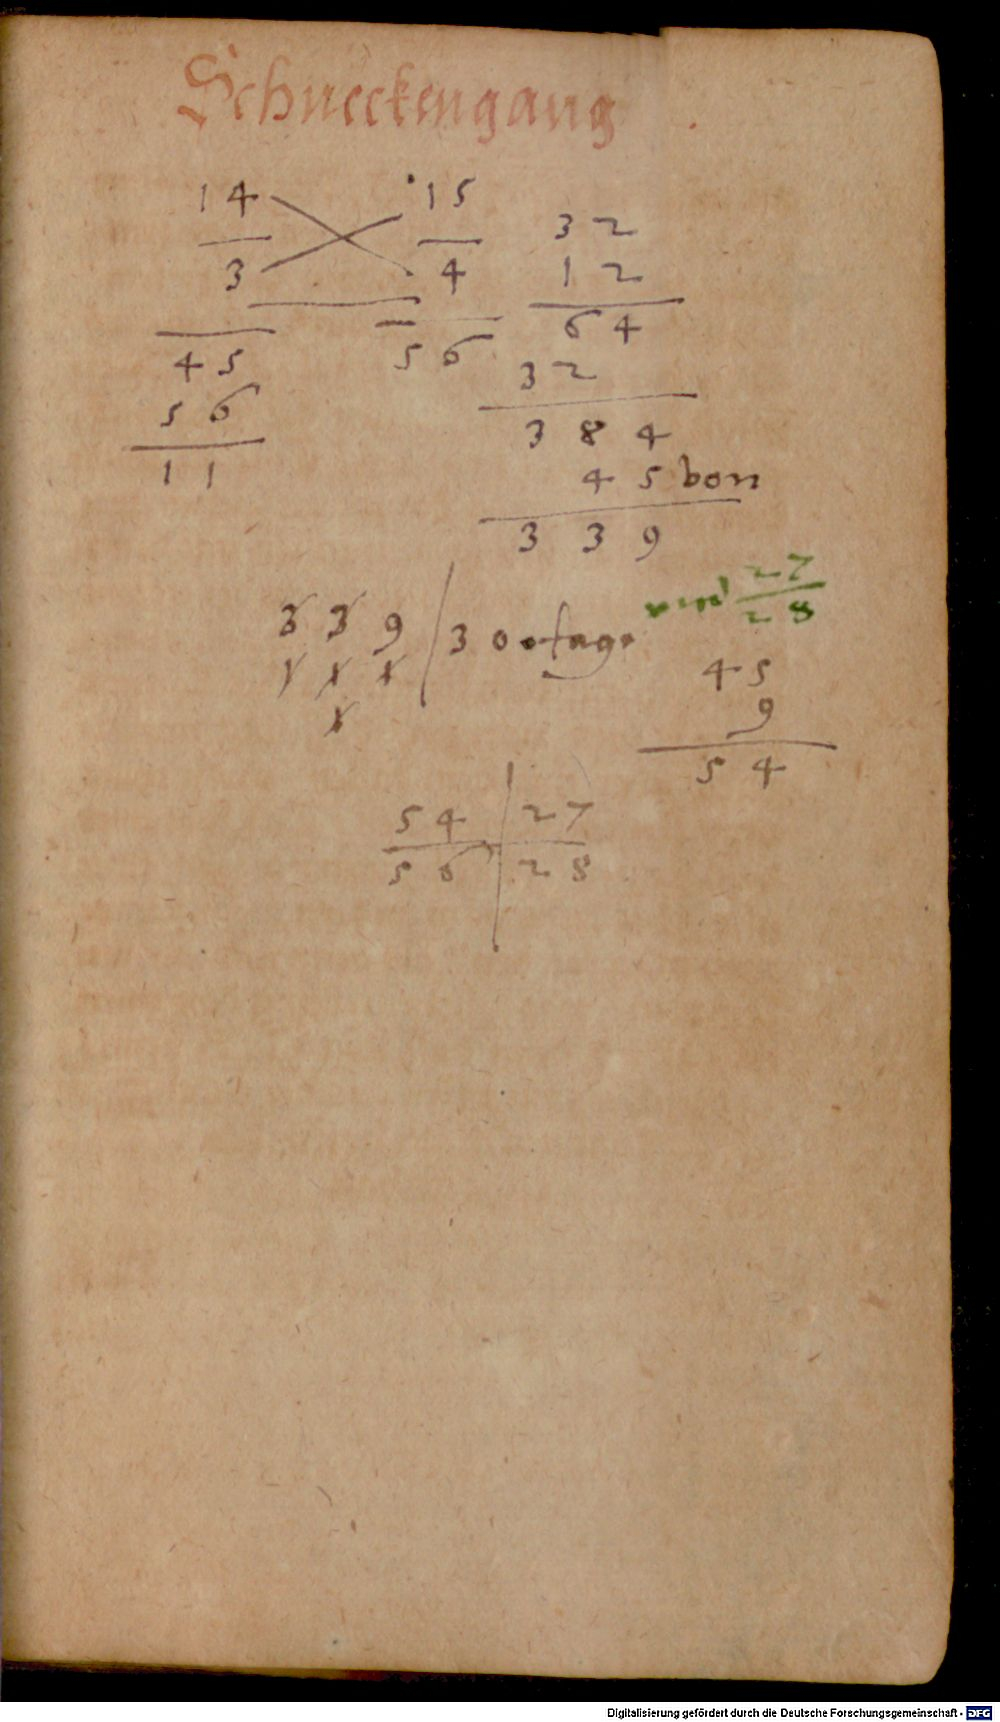 Schneckengang
14 15
3 4
32
12
64
32
384
45 von
339
45
56
11
56
339 / 30 tage vnd 27/28
111
1
45
9
54
54 | 27
56 | 28
Digitalisierung gefördert durch die Deutsche Forschungsgemeinschaft - DFG